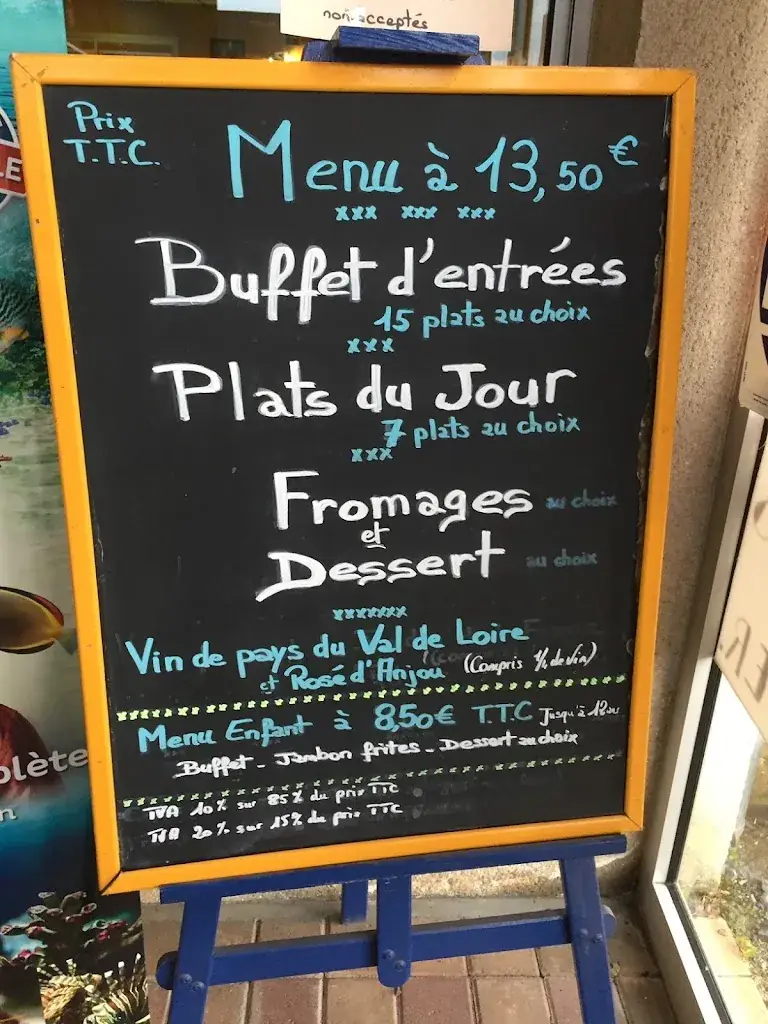 non acceptés
Prix
T.T.C.
Menu à 13,50 €
xxx xxx xxx
Buffet d'entrées
15 plats au choix
xxx
Plats du Jour
7 plats au choix
xxx
Fromages au choix
et
Dessert au choix
xxxxxxx
Vin de pays du Val de Loire
et Rosé d'Anjou (Compris 1/4 de Vin)
Menu Enfant à 8,50€ T.T.C Jusqu'à 12 ans
Buffet - Jambon frites - Dessert au choix
TVA 10% sur 85% du prix TTC
TVA 20% sur 15% du prix TTC
LE
plète
n
R.